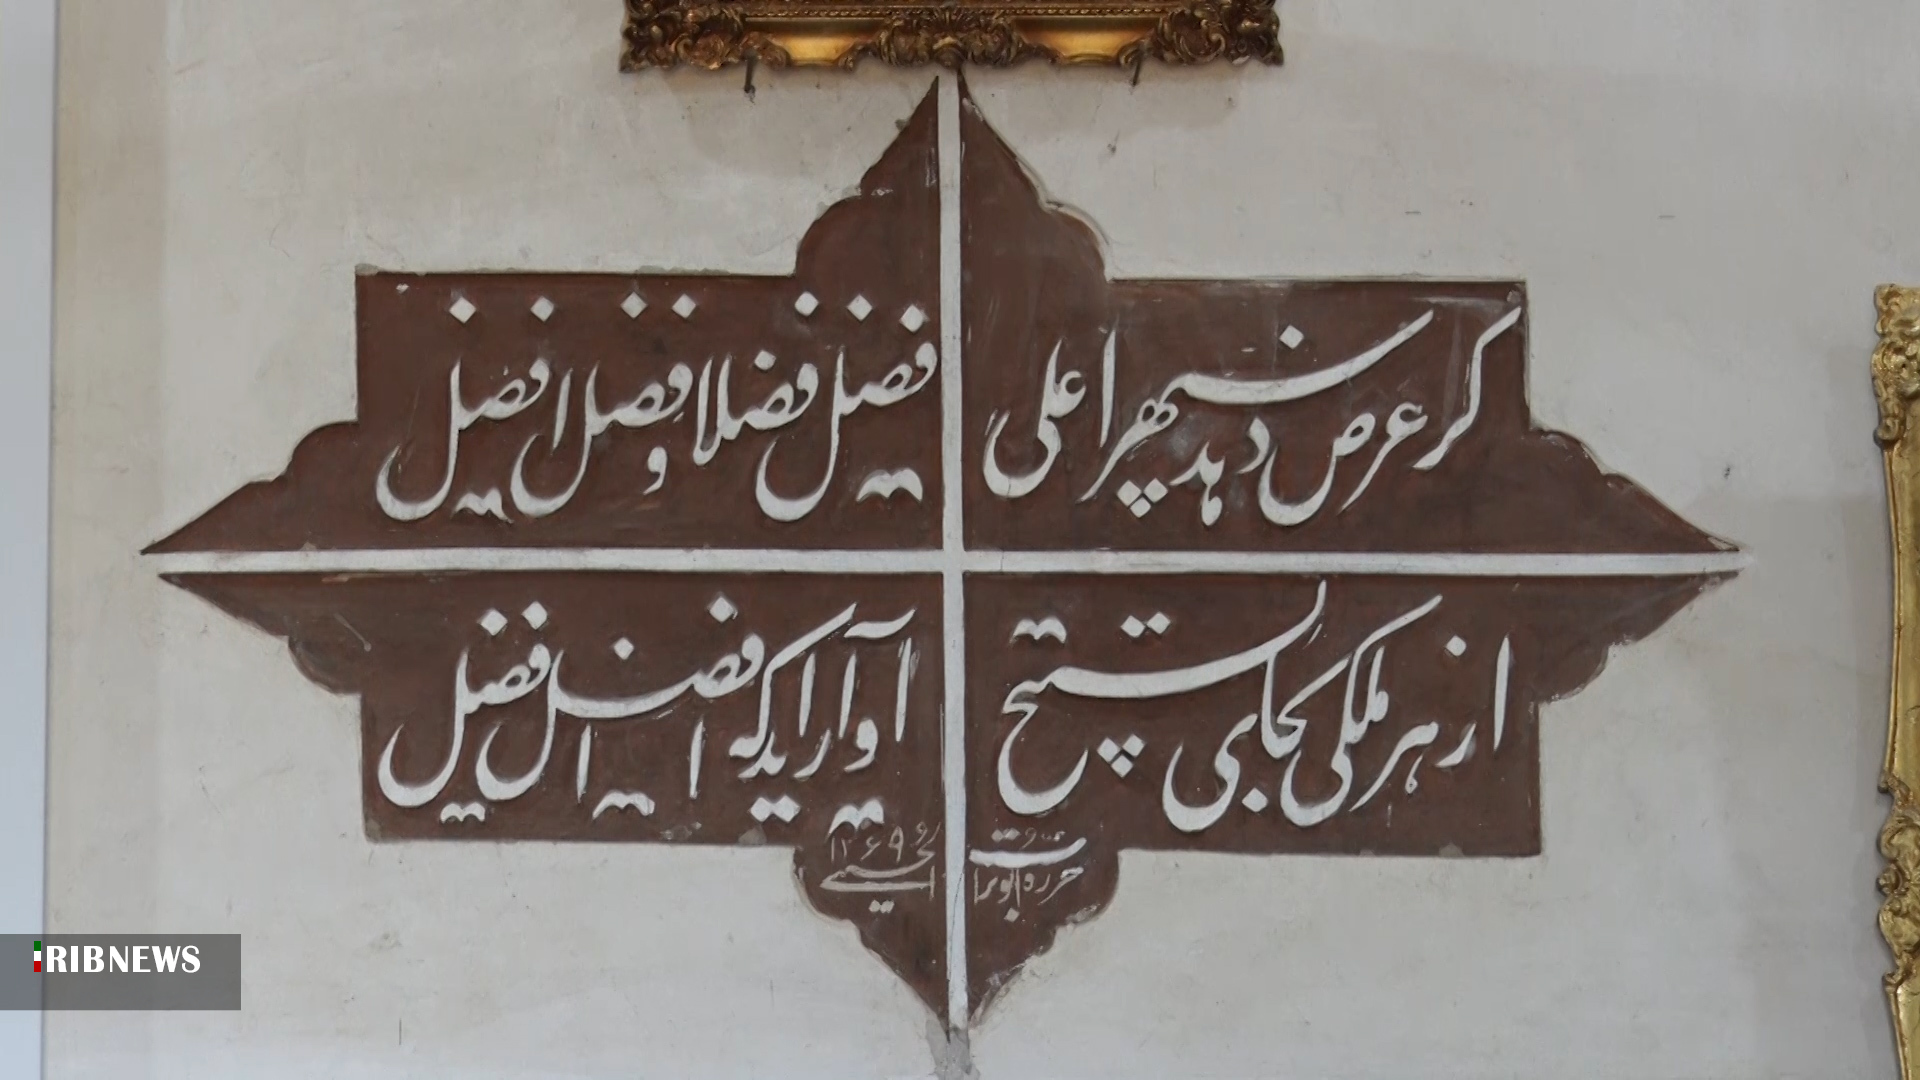 گر عرض دهد سپهر اعلی
فضل فضلا و فضل افضل
از هر ملکی بجای تسبیح
آواز آید که افضل افضل
حرره ابوتراب
الحسینی ۱۳۶۹
IRIBNEWS